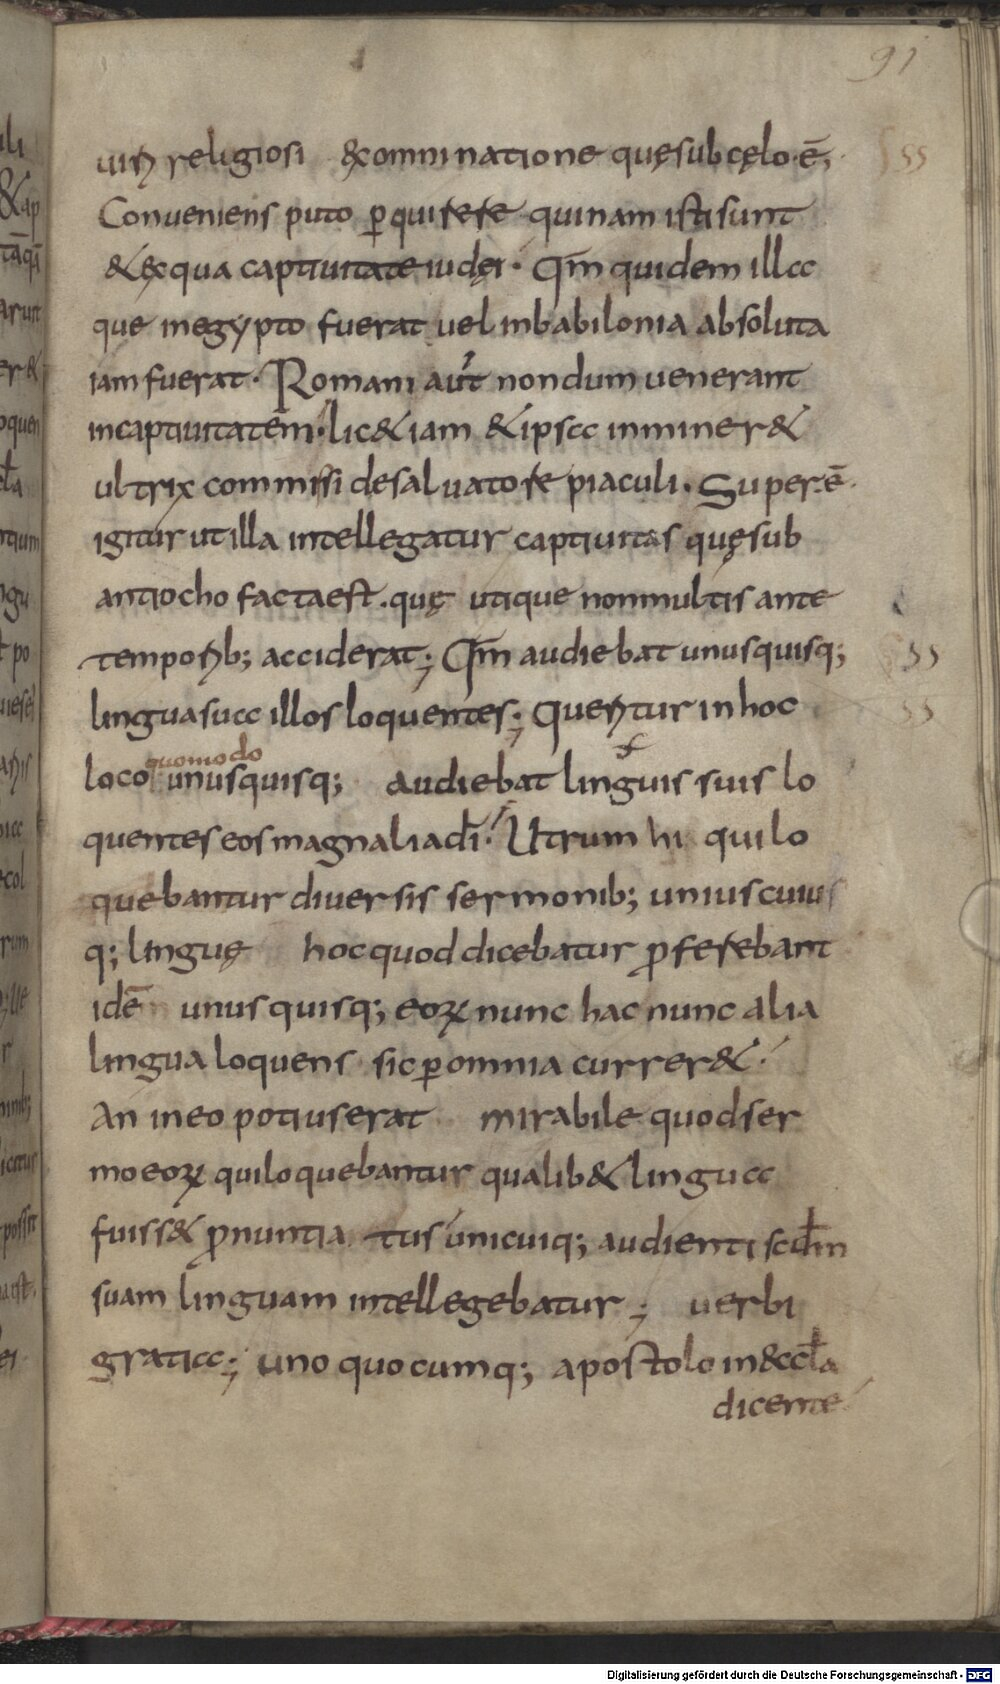 91
uiri religiosi &xomni natione quęsubcęlo·ē;
Conveniens puto p̲quirere quinam istisunt
&ęxqua captiuitate iudęi· Qm̄ quidem illa
que inegypto fuerat uel inbabilonia absoluta
iam fuerat. Romani aūt nondum venerant
incaptiuitatem· lic& iam &ipsa inminer&
ultrix commissi desalvatore piaculi. Super.ē.
igitur ut illa intellegatur captiuitas quęsub
antiocho factaest. quę utique nonmultis ante
temporib; acciderat; Qm̄ audiebat unusquisq;
linguasua illos loquentes; Queritur inhoc
quomodo
loco unusquisq; audiebat linguis suis lo
quentes eos magnalia dī. Utrum hi qui lo
quebantur diversis sermonib; uniuscuius
q; lingvę hocquod dicebatur p̲ferebant
idē unus quisq; eoꝝ nunc hac nunc alia
lingua loquens sic p̲omnia currer&.
An ineo potius erat mirabile quodser
mo eoꝝ quiloquebantur qualib& lingua
fuiss& p̲nuntia tus unicuiq; audienti scdm̄
suam linguam intellegebatur; verbi
gratia; uno quocumq; apostolo in&ccl̄a
dicente
Digitalisierung gefördert durch die Deutsche Forschungsgemeinschaft - DFG